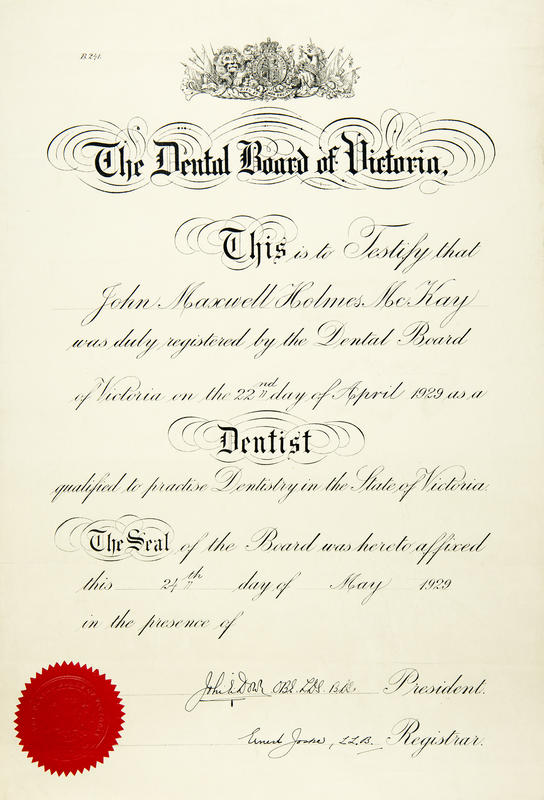 B.241.
The Dental Board of Victoria,
This is to Testify that
John Maxwell Holmes McKay
was duly registered by the Dental Board
of Victoria on the 22nd day of April 1929 as a
Dentist
qualified to practise Dentistry in the State of Victoria.
The Seal of the Board was hereto affixed
this 24th day of May 1929
in the presence of
John President.
Ernest Joske, LL.B. Registrar.